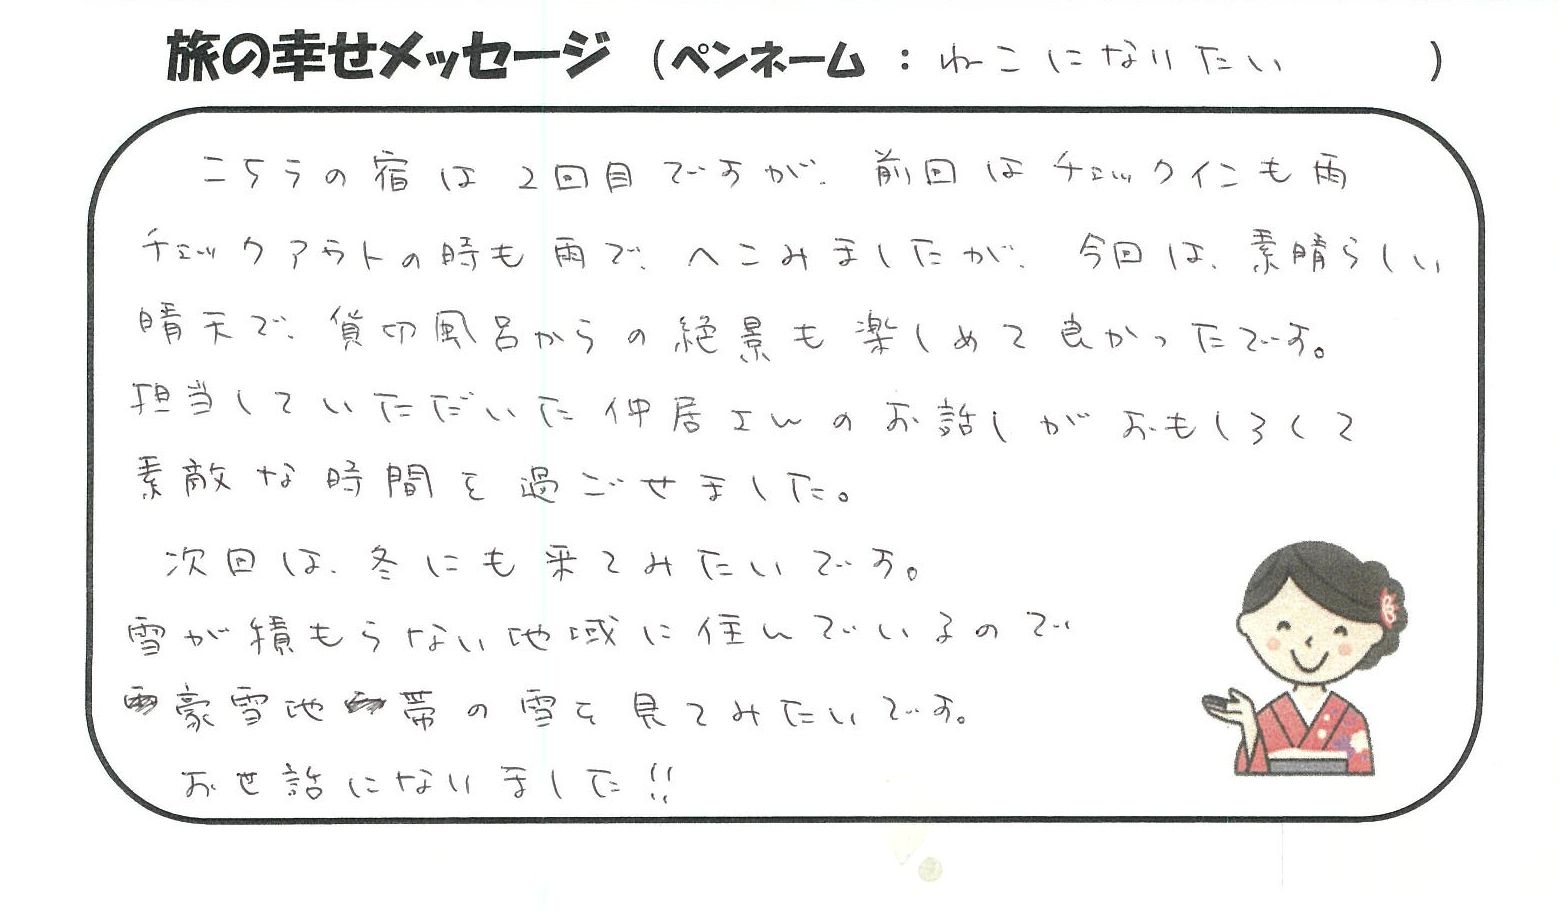 旅の幸せメッセージ (ペンネーム : ねこになりたい )
こちらの宿は2回目ですが、前回はチェックインも雨
チェックアウトの時も雨で、へこみましたが、今回は、素晴らしい
晴天で、貸切風呂からの絶景も楽しめて良かったです。
担当していただいた仲居さんのお話しがおもしろくて
素敵な時間を過ごせました。
次回は、冬にも来てみたいです。
雪が積もらない地域に住んでいるので
豪雪地帯の雪を見てみたいです。
お世話になりました!!